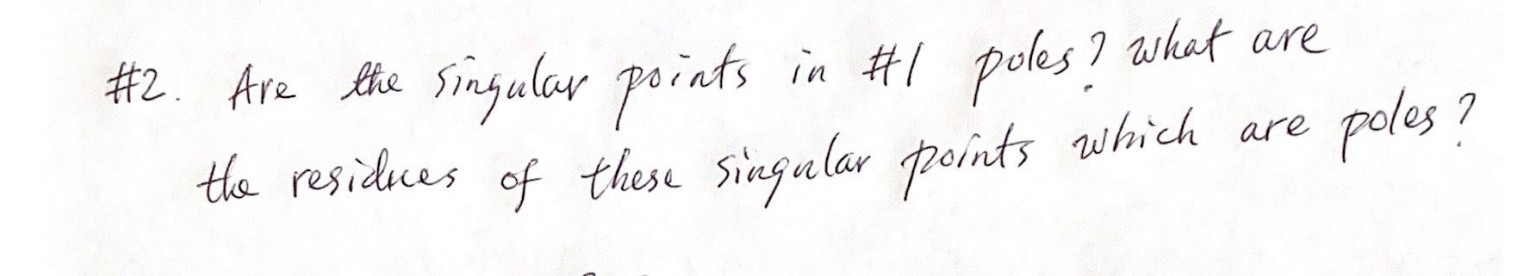 #2. Are the singular points in #1 poles? what are
the residues of these singular points which are poles?